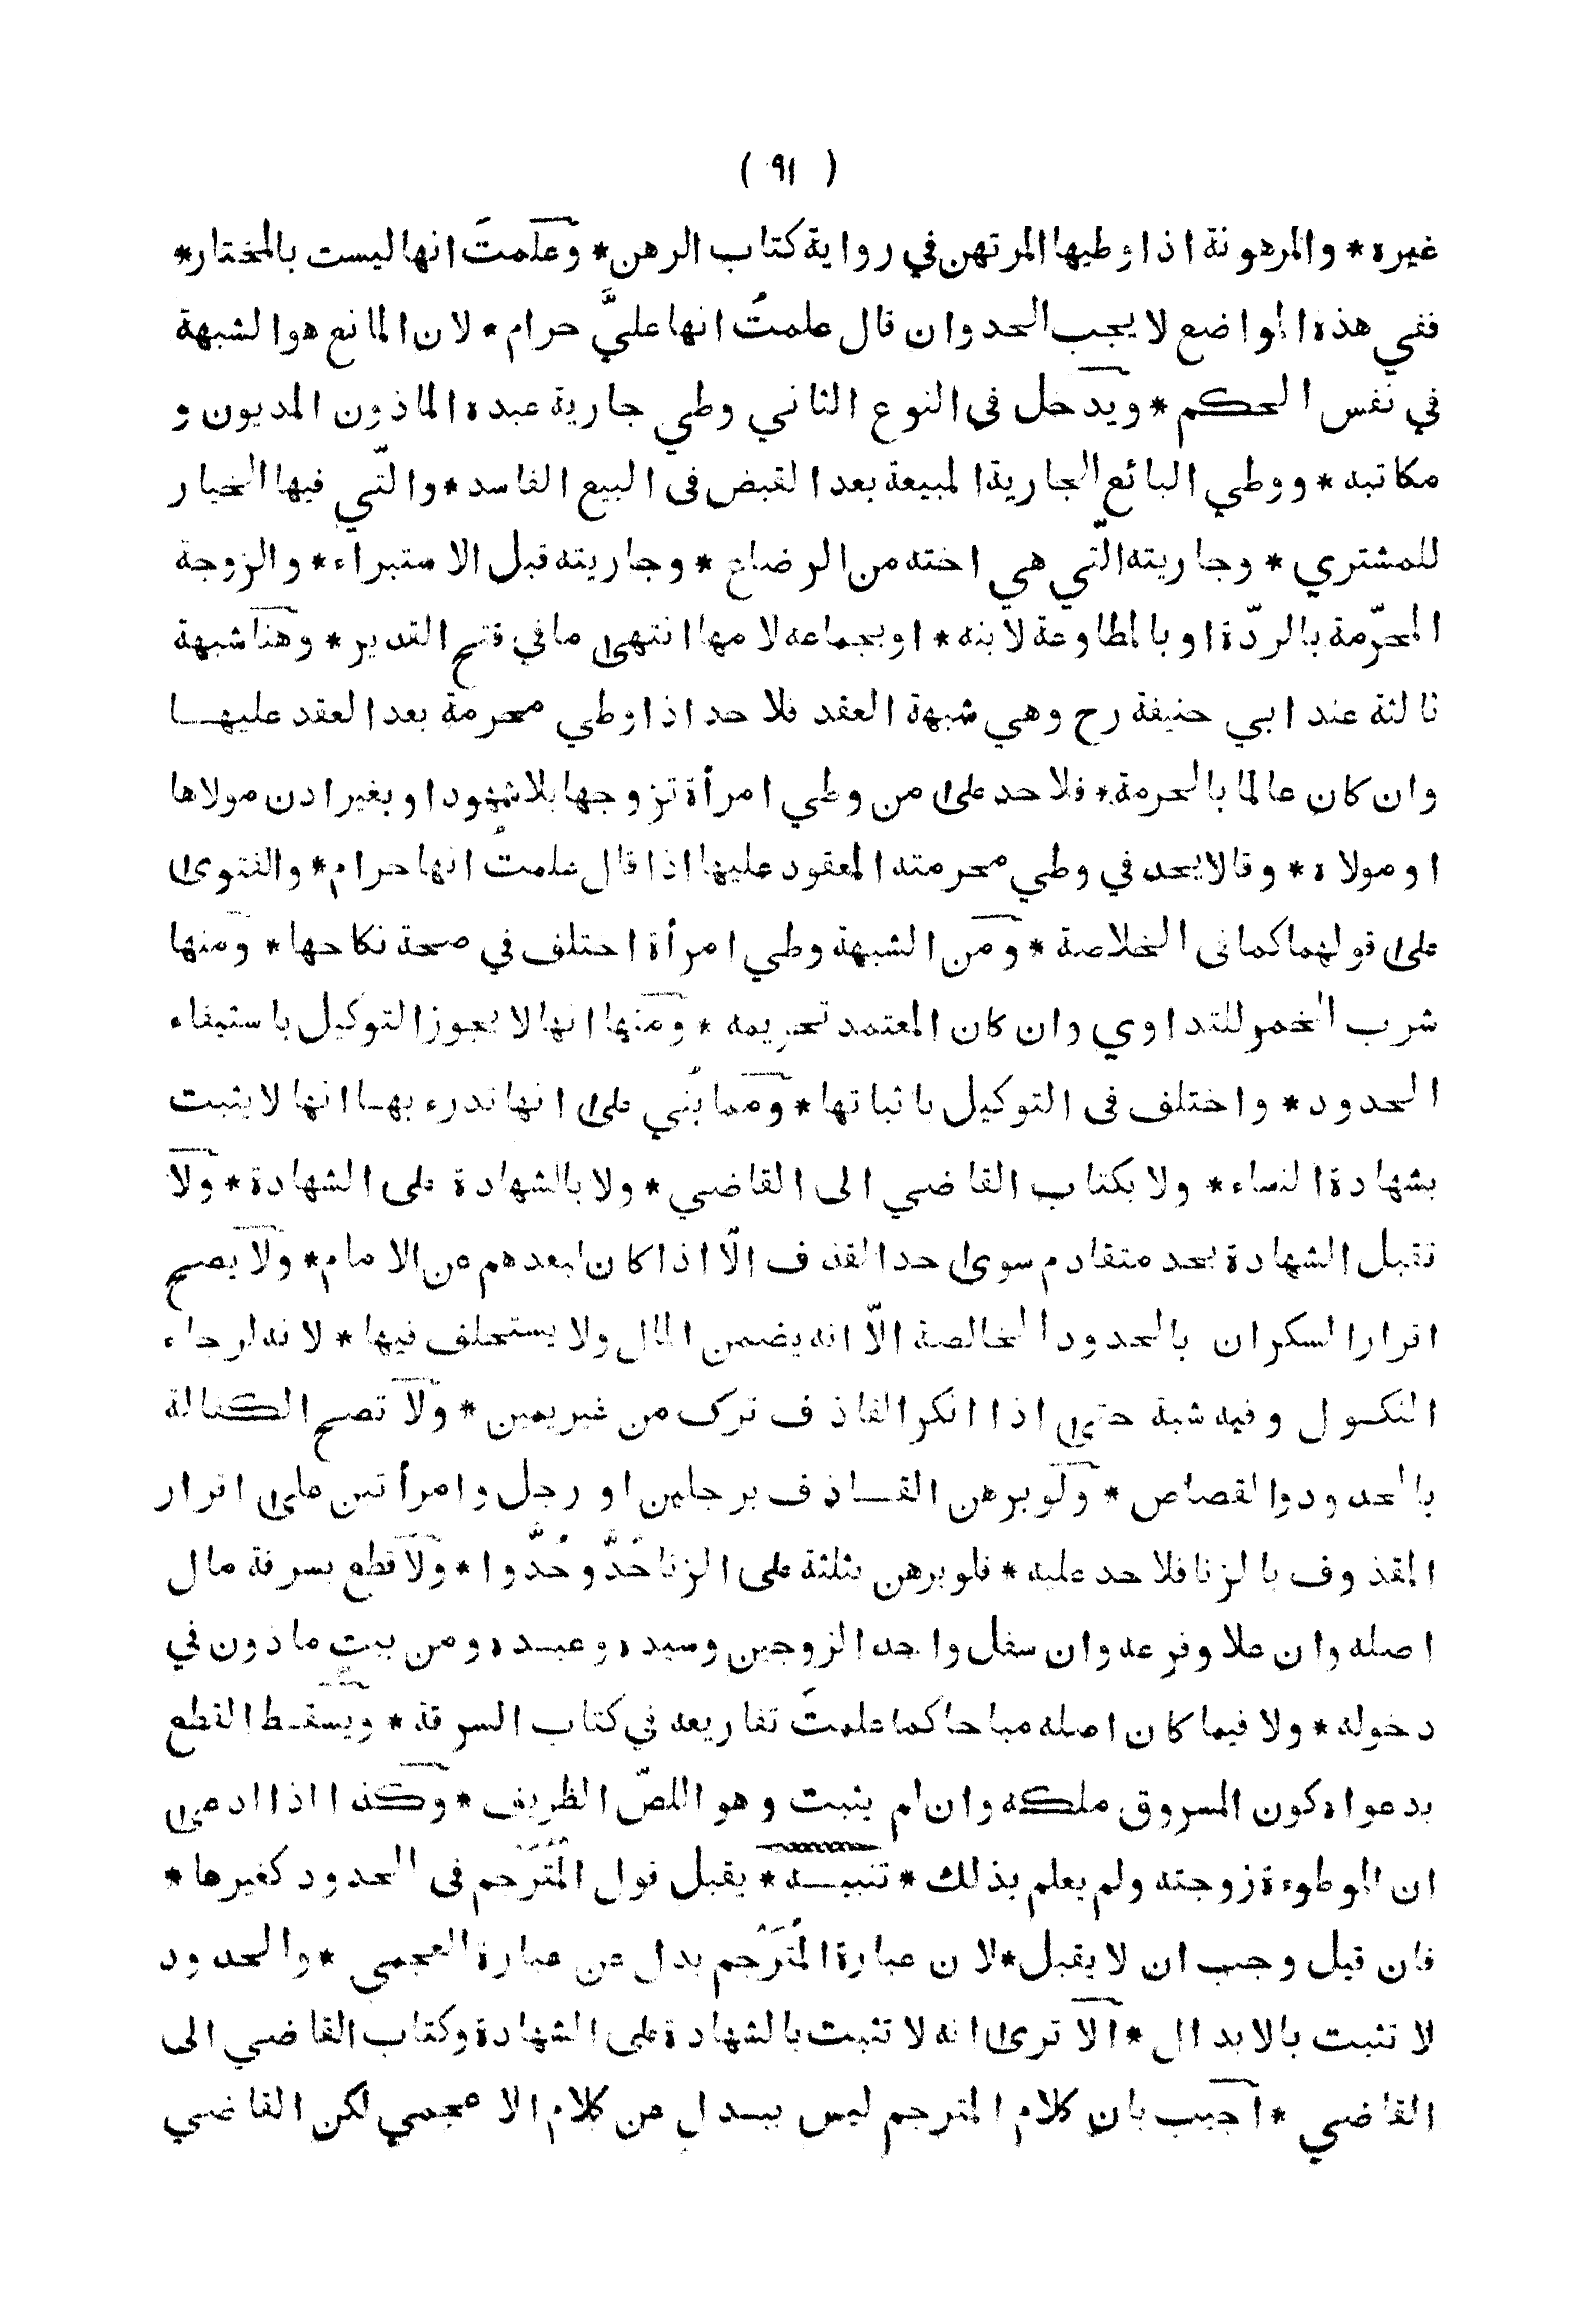 ( ٩١ )
غيره * والمرهونة اذا وطيها المرتهن في رواية كتاب الرهن * وعلمتَ انها ليست بالمختار *
ففي هذه المواضع لا يجب الحد وان قال علمتُ انها عليَّ حرام * لان المانع هو الشبهة
في نفس الحكم * ويدخل فى النوع الثاني وطي جارية عبده الماذون المديون و
مكاتبه * ووطي البائع الجارية المبيعة بعد القبض فى البيع الفاسد * والتّي فيها الخيار
للمشتري * وجاريته التّي هي اخته من الرضاع * وجاريته قبل الاستبراء * والزوجة
المحرّمة بالردّة او بالمطاوعة لابنه * او بجماعه لامها انتهى ما في فتح القدير * وهنا شبهة
ثالثة عند ابي حنيفة رح وهي شبهة العقد فلا حد اذا وطي محرمة بعد العقد عليها
وان كان عالما بالحرمة * فلا حد على من وطي امرأة تزوجها بلا شهود او بغير اذن مولاها
او مولاه * وقالا يحد في وطي محرمته المعقود عليها اذا قال علمتُ انها حرام * والفتوى
على قولهما كما فى الخلاصة * ومن الشبهة وطي امرأة اختلف في صحة نكاحها * ومنها
شرب الخمر للتداوي وان كان المعتمد تحريمه * ومنها انها لا يجوز التوكيل باستيفاء
الحدود * واختلف فى التوكيل باثباتها * ومما بُني على انها تدرء بها انها لا يثبت
بشهادة النساء * ولا بكتاب القاضي الى القاضي * ولا بالشهادة على الشهادة * ولا
تقبل الشهادة بحد متقادم سوى حد القذف الّا اذا كان لبعدهم عن الامام * ولا يصح
اقرار السكران بالحدود الخالصة الاّ انه يضمن المال ولا يستحلف فيها * لانه لرجاء
النكول وفيه شبة حتى اذا انكر القاذف ترك من غير يمين * ولا تصح الكفالة
بالحدود والقصاص * ولو برهن القاذف برجلين او رجل وامرأتين على اقرار
المقذوف بالزنا فلا حد عليه * فلو برهن بثلثة على الزنا حُدَّ و حُدَّوا * ولا قطع بسرقة مال
اصله وان علا وفرعه وان سفل واحد الزوجين وسيده وعبده ومن بيتٍ ماذون في
دخوله * ولا فيما كان اصله مباحا كما علمتَ تفاريعه في كتاب السرقة * ويَسقط القطع
بدعواه كون المسروق ملكه وان لم يثبت وهو اللصّ الظريف * وكذا اذا ادعى
ان الموطوءة زوجته ولم يعلم بذلك * تنبيه * يقبل قول المُتَرجُم فى الحدود كغيرها *
فان قيل وجب ان لا يقبل * لان عبارة المُتَرجُم بدل عن عبارة العجمي * والحدود
لا تثبت بالابدال * الا ترى انه لا تثبت بالشهادة على الشهادة وكتاب القاضي الى
القاضي * اجيب بان كلام المترجم ليس ببدل عن كلام الاعجمي لكن القاضي